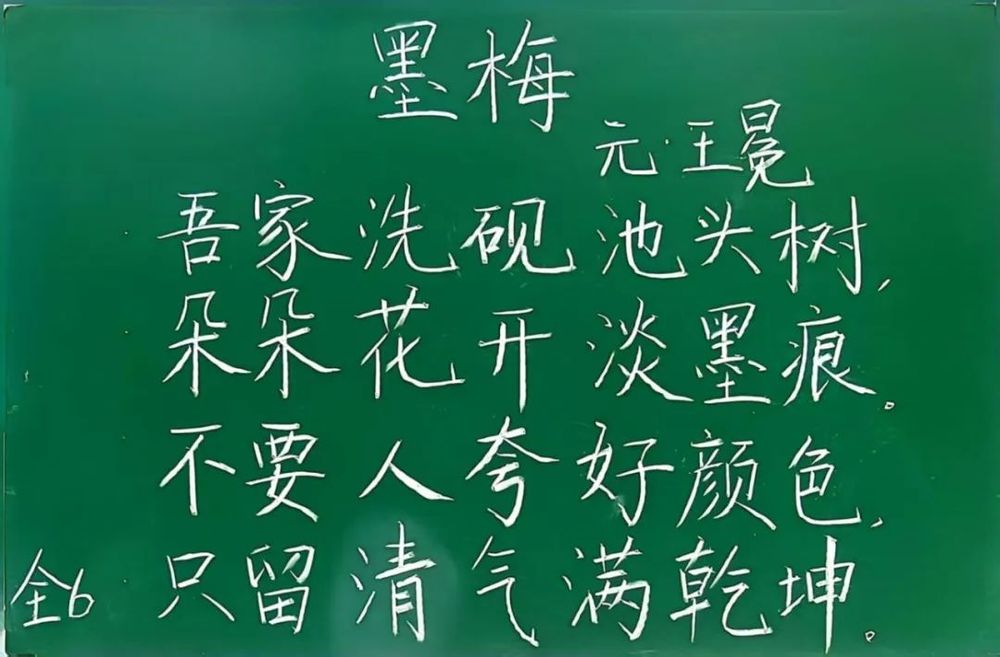 墨梅
元·王冕
吾家洗砚池头树,
朵朵花开淡墨痕。
不要人夸好颜色,
只留清气满乾坤。
全6